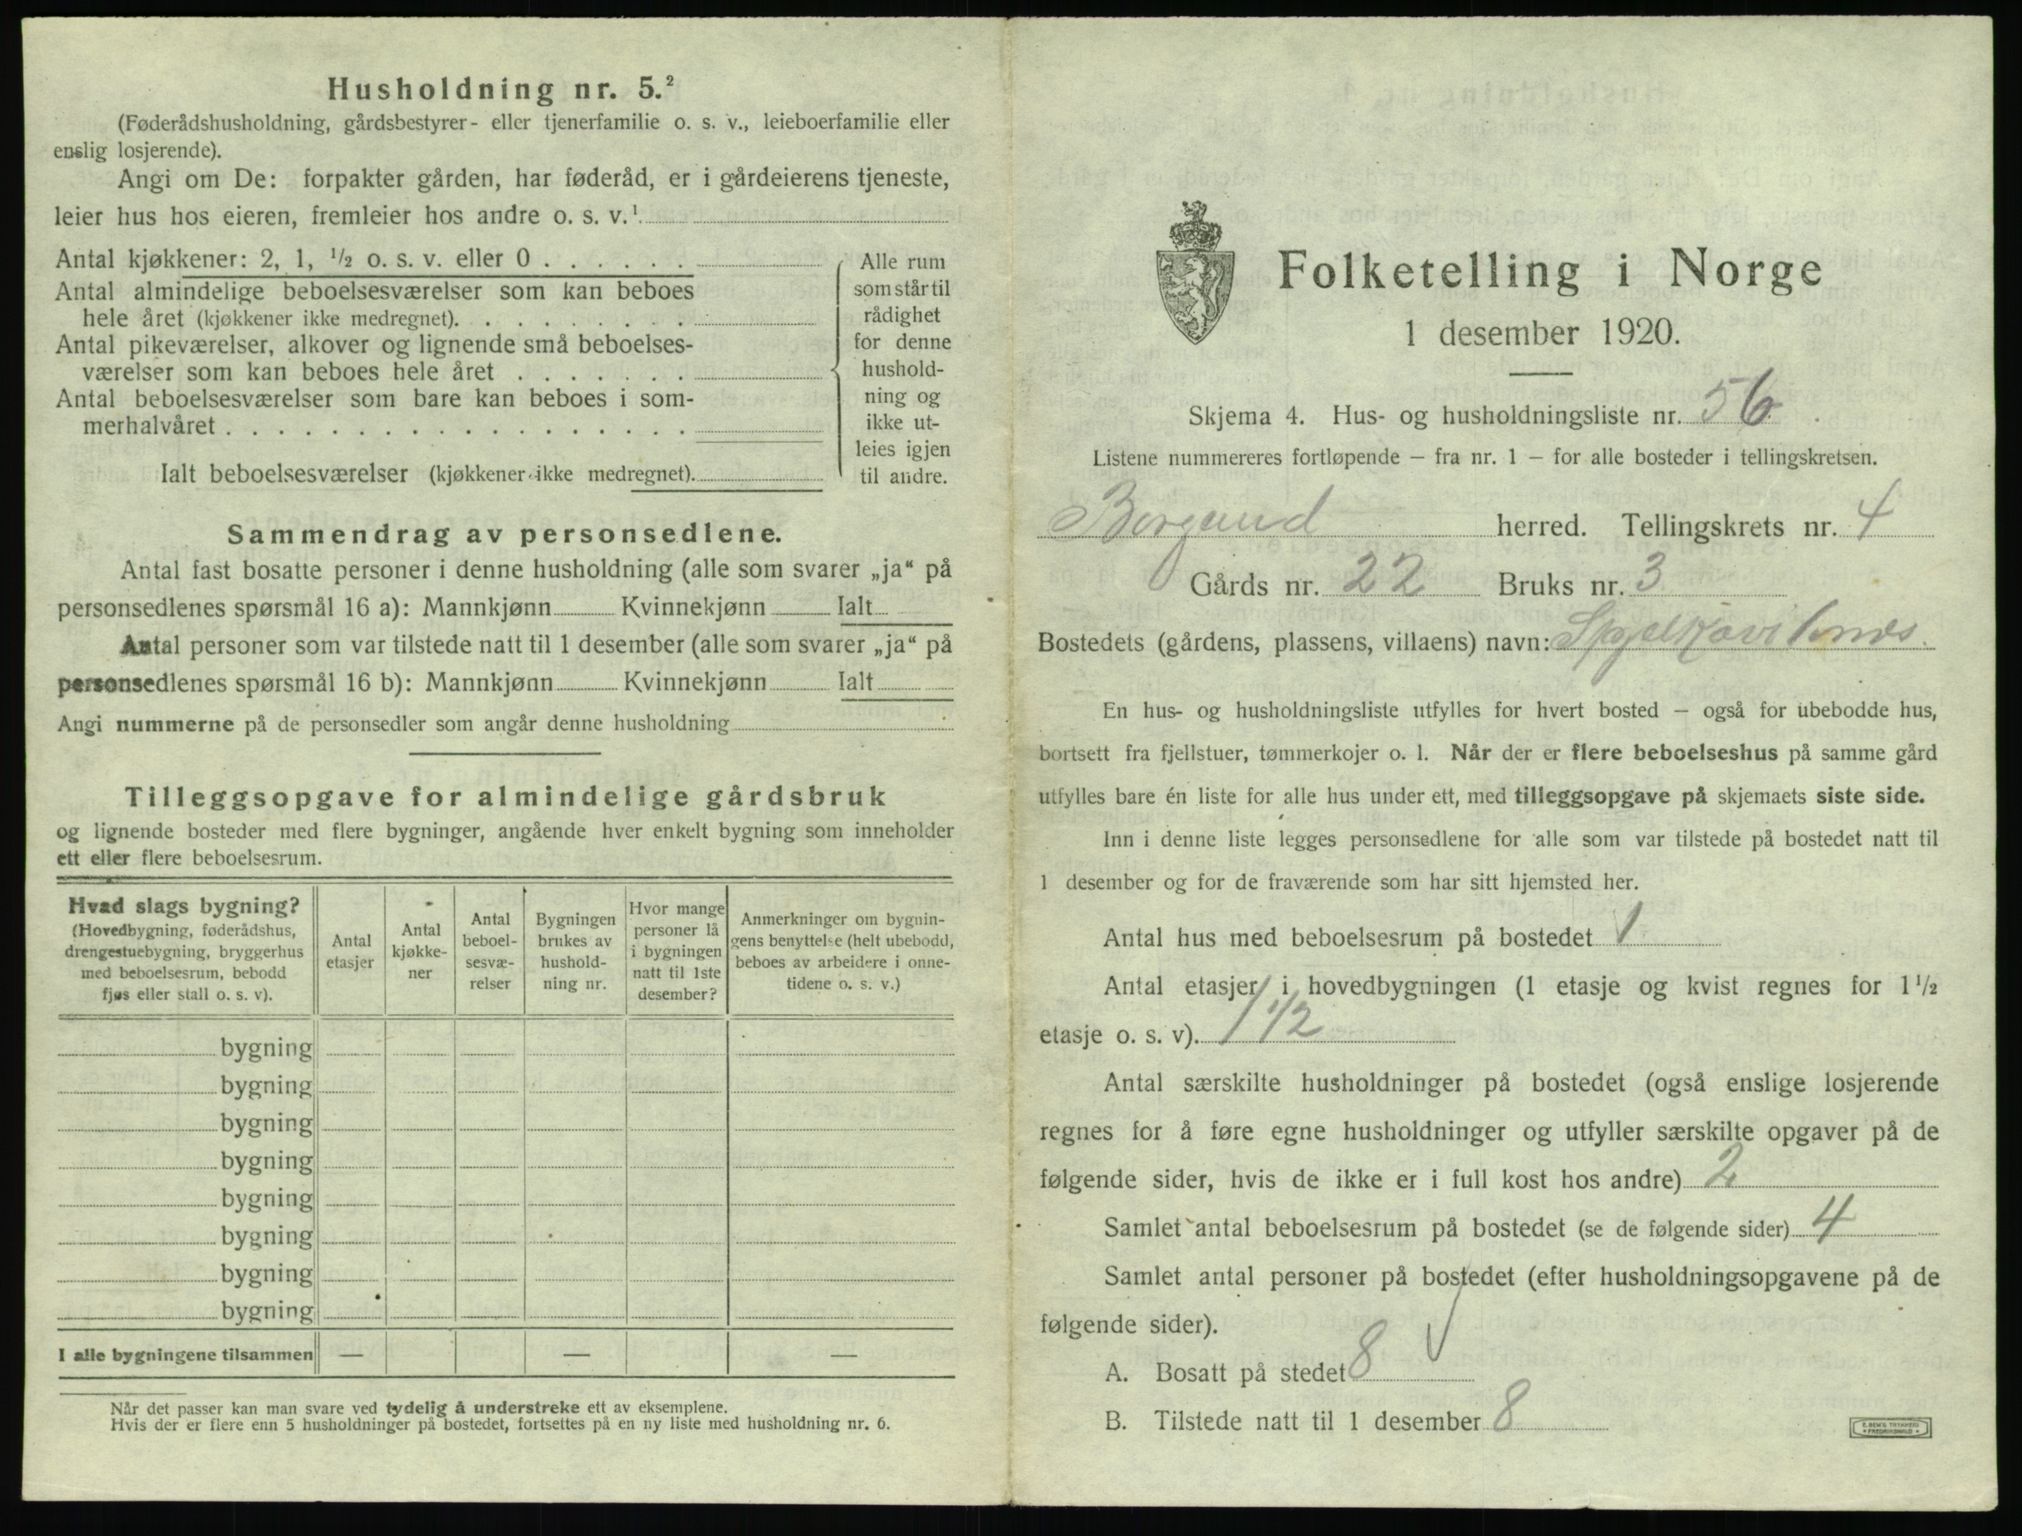 Husholdning nr. 5.²
(Føderådshusholdning, gårdsbestyrer- eller tjenerfamilie o. s. v., leieboerfamilie eller
enslig losjerende).
Angi om De: forpakter gården, har føderåd, er i gårdeierens tjeneste,
leier hus hos eieren, fremleier hos andre o. s. v.¹
Antal kjøkkener: 2, 1, ½ o. s. v. eller 0
Antal almindelige beboelsesværelser som kan beboes
hele året (kjøkkener ikke medregnet).
Antal pikeværelser, alkover og lignende små beboelses-
værelser som kan beboes hele året
Antal beboelsesværelser som bare kan beboes i som-
merhalvåret
Ialt beboelsesværelser (kjøkkener ikke medregnet).
Alle rum
som står til
rådighet
for denne
hushold-
ning og
ikke ut-
leies igjen
til andre.
Sammendrag av personsedlene.
Antal fast bosatte personer i denne husholdning (alle som svarer „ja“ på
personsedlenes spørsmål 16 a): Mannkjønn Kvinnekjønn Ialt
Antal personer som var tilstede natt til 1 desember (alle som svarer „ja“ på
personsedlenes spørsmål 16 b): Mannkjønn Kvinnekjønn Ialt
Angi nummerne på de personsedler som angår denne husholdning
Tilleggsopgave for almindelige gårdsbruk
og lignende bosteder med flere bygninger, angående hver enkelt bygning som inneholder
ett eller flere beboelsesrum.
Hvad slags bygning?
(Hovedbygning, føderådshus,
drengestuebygning, bryggerhus
med beboelsesrum, bebodd
fjøs eller stall o. s. v).
Antal
etasjer
Antal
kjøkke-
ner
Antal
beboel-
sesvæ-
relser
Bygningen
brukes av
hushold-
ning nr.
Hvor mange
personer lå
i bygningen
natt til 1ste
desember?
Anmerkninger om bygnin-
gens benyttelse (helt ubebodd,
beboes av arbeidere i onne-
tidene o. s. v.)
bygning
bygning
bygning
bygning
bygning
bygning
bygning
bygning
I alle bygningene tilsammen — — —
Når det passer kan man svare ved tydelig å understreke ett av eksemplene.
Hvis der er flere enn 5 husholdninger på bostedet, fortsettes på en ny liste med husholdning nr. 6.
Folketelling i Norge
1 desember 1920.
Skjema 4. Hus- og husholdningsliste nr. 56
Listene nummereres fortløpende – fra nr. 1 – for alle bosteder i tellingskretsen.
Borgund herred. Tellingskrets nr. 4
Gårds nr. 22 Bruks nr. 3
Bostedets (gårdens, plassens, villaens) navn: Spjelkaviknes
En hus- og husholdningsliste utfylles for hvert bosted – også for ubebodde hus,
bortsett fra fjellstuer, tømmerkojer o. l. Når der er flere beboelseshus på samme gård
utfylles bare én liste for alle hus under ett, med tilleggsopgave på skjemaets siste side.
Inn i denne liste legges personsedlene for alle som var tilstede på bostedet natt til
1 desember og for de fraværende som har sitt hjemsted her.
Antal hus med beboelsesrum på bostedet 1
Antal etasjer i hovedbygningen (1 etasje og kvist regnes for 1½
etasje o. s. v). 1 1/2
Antal særskilte husholdninger på bostedet (også enslige losjerende
regnes for å føre egne husholdninger og utfyller særskilte opgaver på de
følgende sider, hvis de ikke er i full kost hos andre) 2
Samlet antal beboelsesrum på bostedet (se de følgende sider) 4
Samlet antal personer på bostedet (efter husholdningsopgavene på de
følgende sider).
A. Bosatt på stedet 8
B. Tilstede natt til 1 desember 8